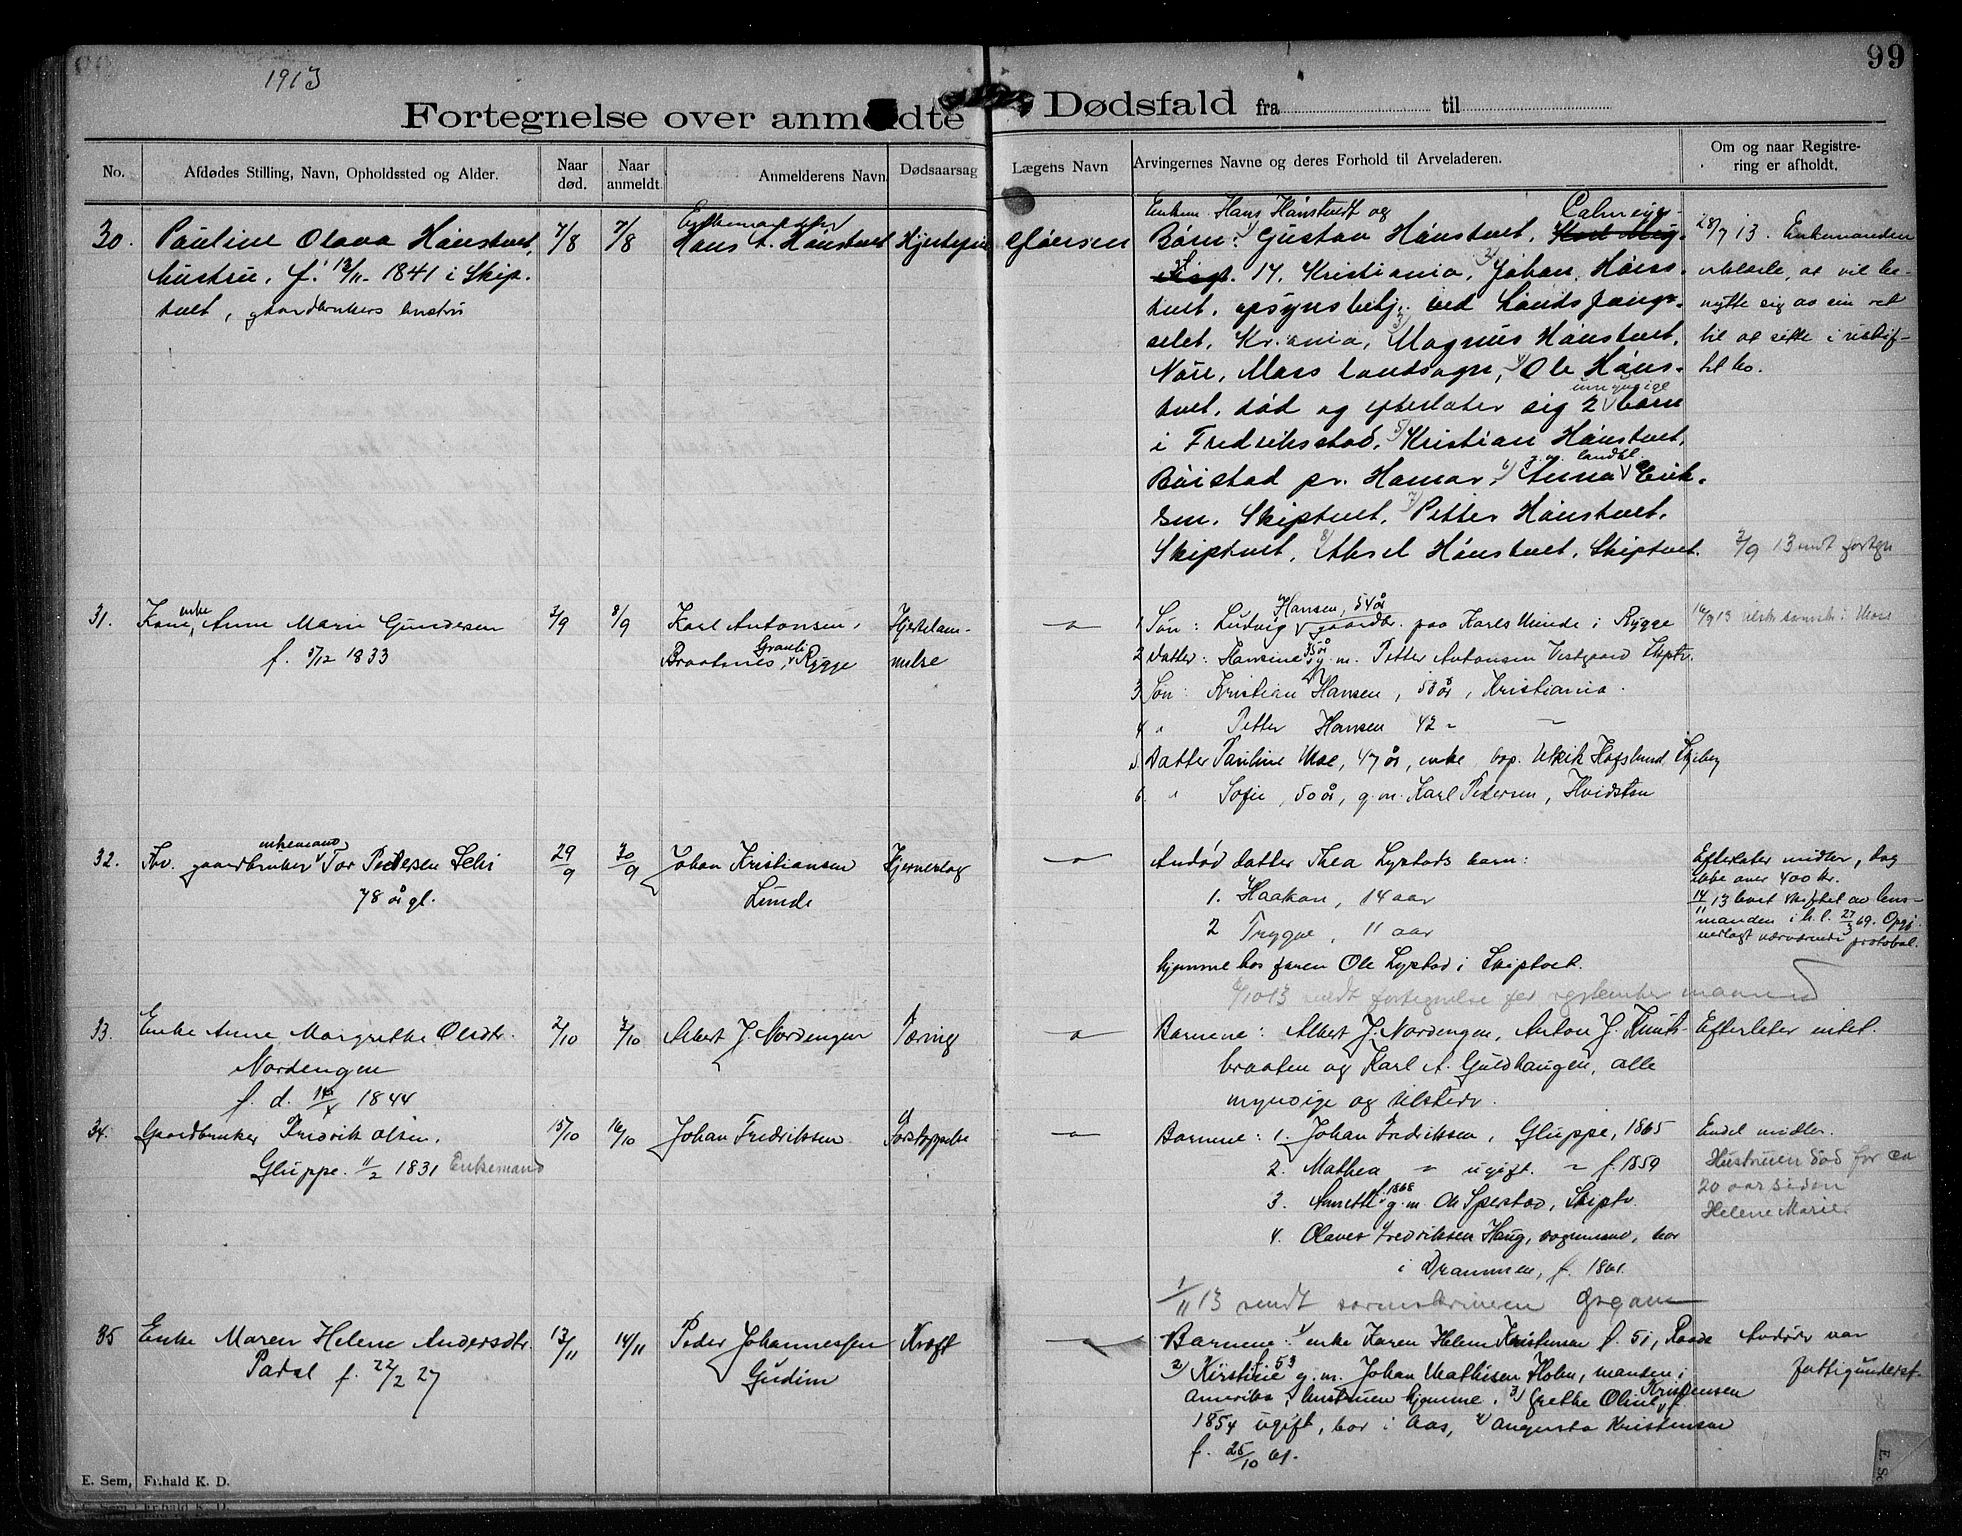 99
1913
Fortegnelse over anmeldte Dødsfald fra til
No.
Afdødes Stilling, Navn, Opholdssted og Alder.
Naar død.
Naar anmeldt.
Anmelderens Navn
Dødsaarsag
Lægens Navn
Arvingernes Navne og deres Forhold til Arveladeren.
Om og naar Registrering er afholdt.
30. Pauline Olava Hånstvet,
hustru, f. 13/11 1841 i Skip-
tvet, gaardbrukers hustru
7/8
7/8
Enkemanden
Hans A. Hånstvet
Enkem. Hans Hånstvedt og
Børn: 1) Gustav Hånstvet, Calmeyer-
gt. 14, Kristiania, 2) Johan Håns-
tvet, opsynsbetj. ved Landsfæng-
selet, Kr.ania, 3) Magnus Hånstvet,
Moss landsogn, 4) Ole Håns-
tvet, død og efterlater sig 2 umyndige børn
i Fredriksstad, 5) Kristian Hånstvet,
pr. Hamar, 6) Anna Erik-
sen, Skiptvet, 7) Petter Hånstvet,
Skiptvet, 8) Aksel Hånstvet, Skiptvet.
13. Enkemanden
erklærte, at vil be-
nytte sig av sin ret
til at sitte i uskif-
tet bo.
2/9 13 sendt fortegn
31. Kone, enke Anne Marie Gundersen
f. 5/12 1833
2/9
8/9
Karl Antonsen,
Braatnes, Rygge
Hjertelam-
melse
1 Søn: Ludvig Hansen, 54 år gaardbr. paa Karls Minde i Rygge
2 Datter: Hansine 55 år g. m. Petter Antonsen Vestgaard Skiptv.
3 Søn: Kristian Hansen, 53 år, Kristiania.
4 " Petter Hansen 42 -
5 Datter Pauline Moe, 47 år, enke, Hafslund, Skjeberg
6. " Sofie, 50 år, g. m. Karl Pedersen, Hvidsten
32. Fhv. gaardbruker enkemand Tor Pedersen Lehi
78 år gl.
29/9
30/9
Johan Kristiansen
Lunde
Hjerneslag
Avdød datter Thea Lystads barn:
1. Haakon, 14 aar
2 Trygve, 11 aar
hjemme hos faren Ole Lystad i Skiptvet.
Efterlater midler, dog
ikke over 400 kr.
14/11 13 blevet skiftet av lens-
manden i h.t. 27/3 69. Opgj.
nedlagt nærværende protokol.
6/10 13 sendt fortegnelse for september maaned
33. Enke Anne Margrethe Olsdtr.
Nordengen
f. d. 1844
2/10
3/10
Albert J. Nordengen
Tæring
Barnene: Albert J. Nordengen, Anton J. Knats-
braaten og Karl A. Guldhaugen, alle
myndige og tilstede.
Efterlater intet.
34. Gaardbruker Fredrik Olsen,
Gluppe. 11/2 1831 Enkemand
15/10
16/10
Johan Fredriksen
Forstoppelse
Barnene: 1. Johan Fredriksen, Gluppe, 1865
2. Mathea " ugift. " f. 1859
3. Annette f. 1868 g. m. Ole Sperstad, Skiptv.
4. Olaves Fredriksen Haug, vognmand, bor
i Drammen, f. 1861.
Endel midler.
Hustruen død for ca
20 aar siden
Helene Marie.
1/11 13 sendt sorenskriveren opgave
35 Enke Maren Helene Andersdtr.
Padal f. 22/2 27
13/11
14/11
Peder Johannessen
Gudim
Kræft
Barnene: 1) enke Karen Helene Kristensen f. 51, Raade
2) Kirstine f. 53 g. m. Johan Mathisen Holm, manden i
Amerika, hustruen hjemme. 3) Grethe Oline Kristensen f.
1854 ugift, bor i Aas, 4) Augusta Kristensen
f. 25/10 61.
Avdøde var
fattigunderst.
E. Sem, Fr.hald K. D.